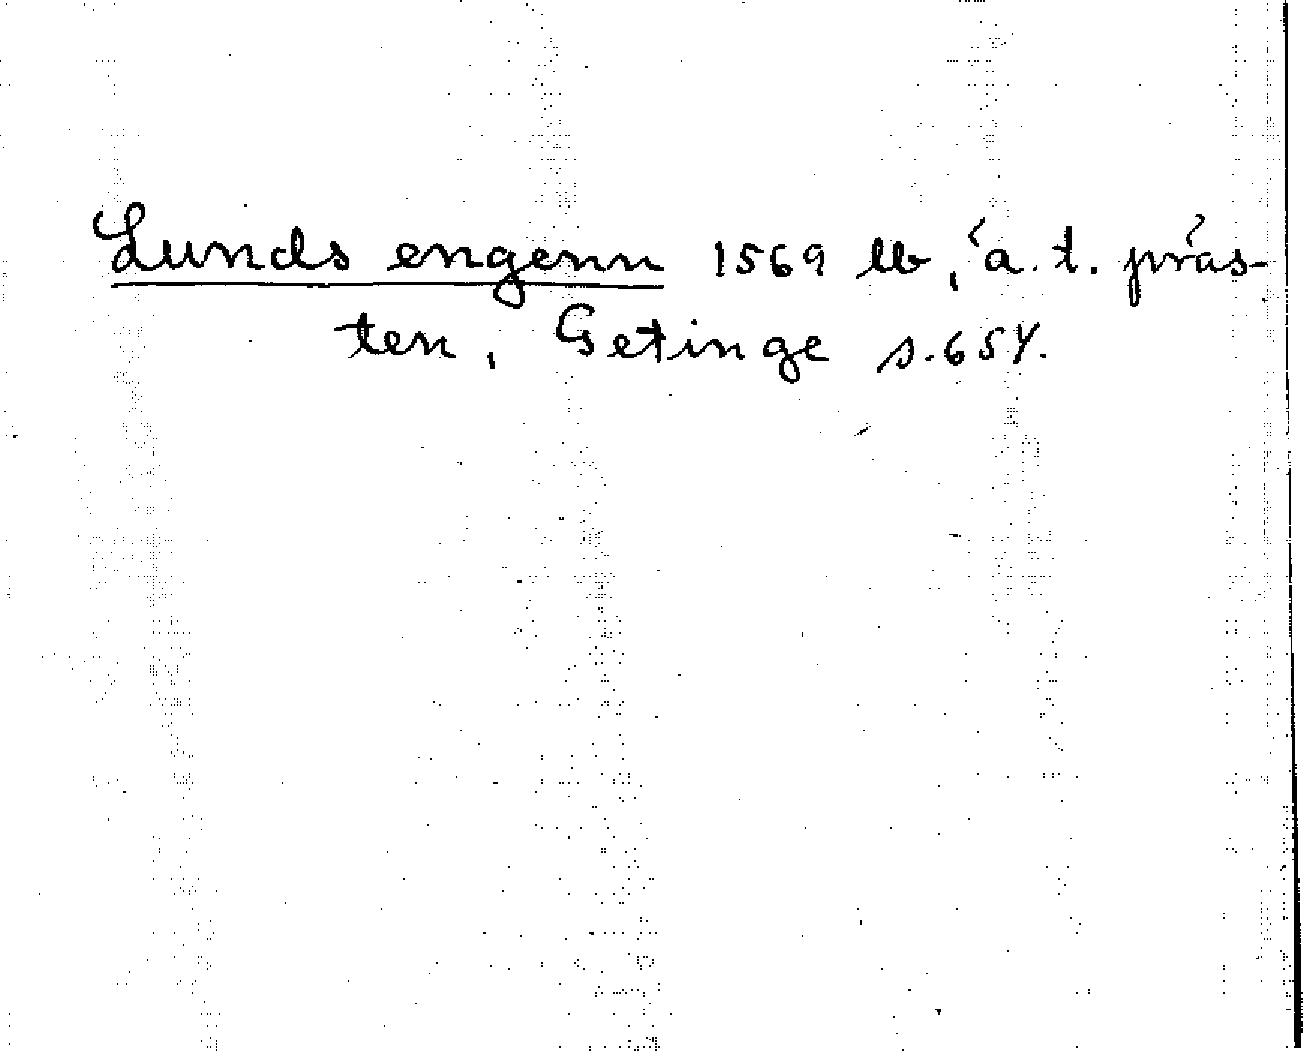 Lunds engenn 1569 lb, ä. t. präs-
ten, Getinge s. 654.